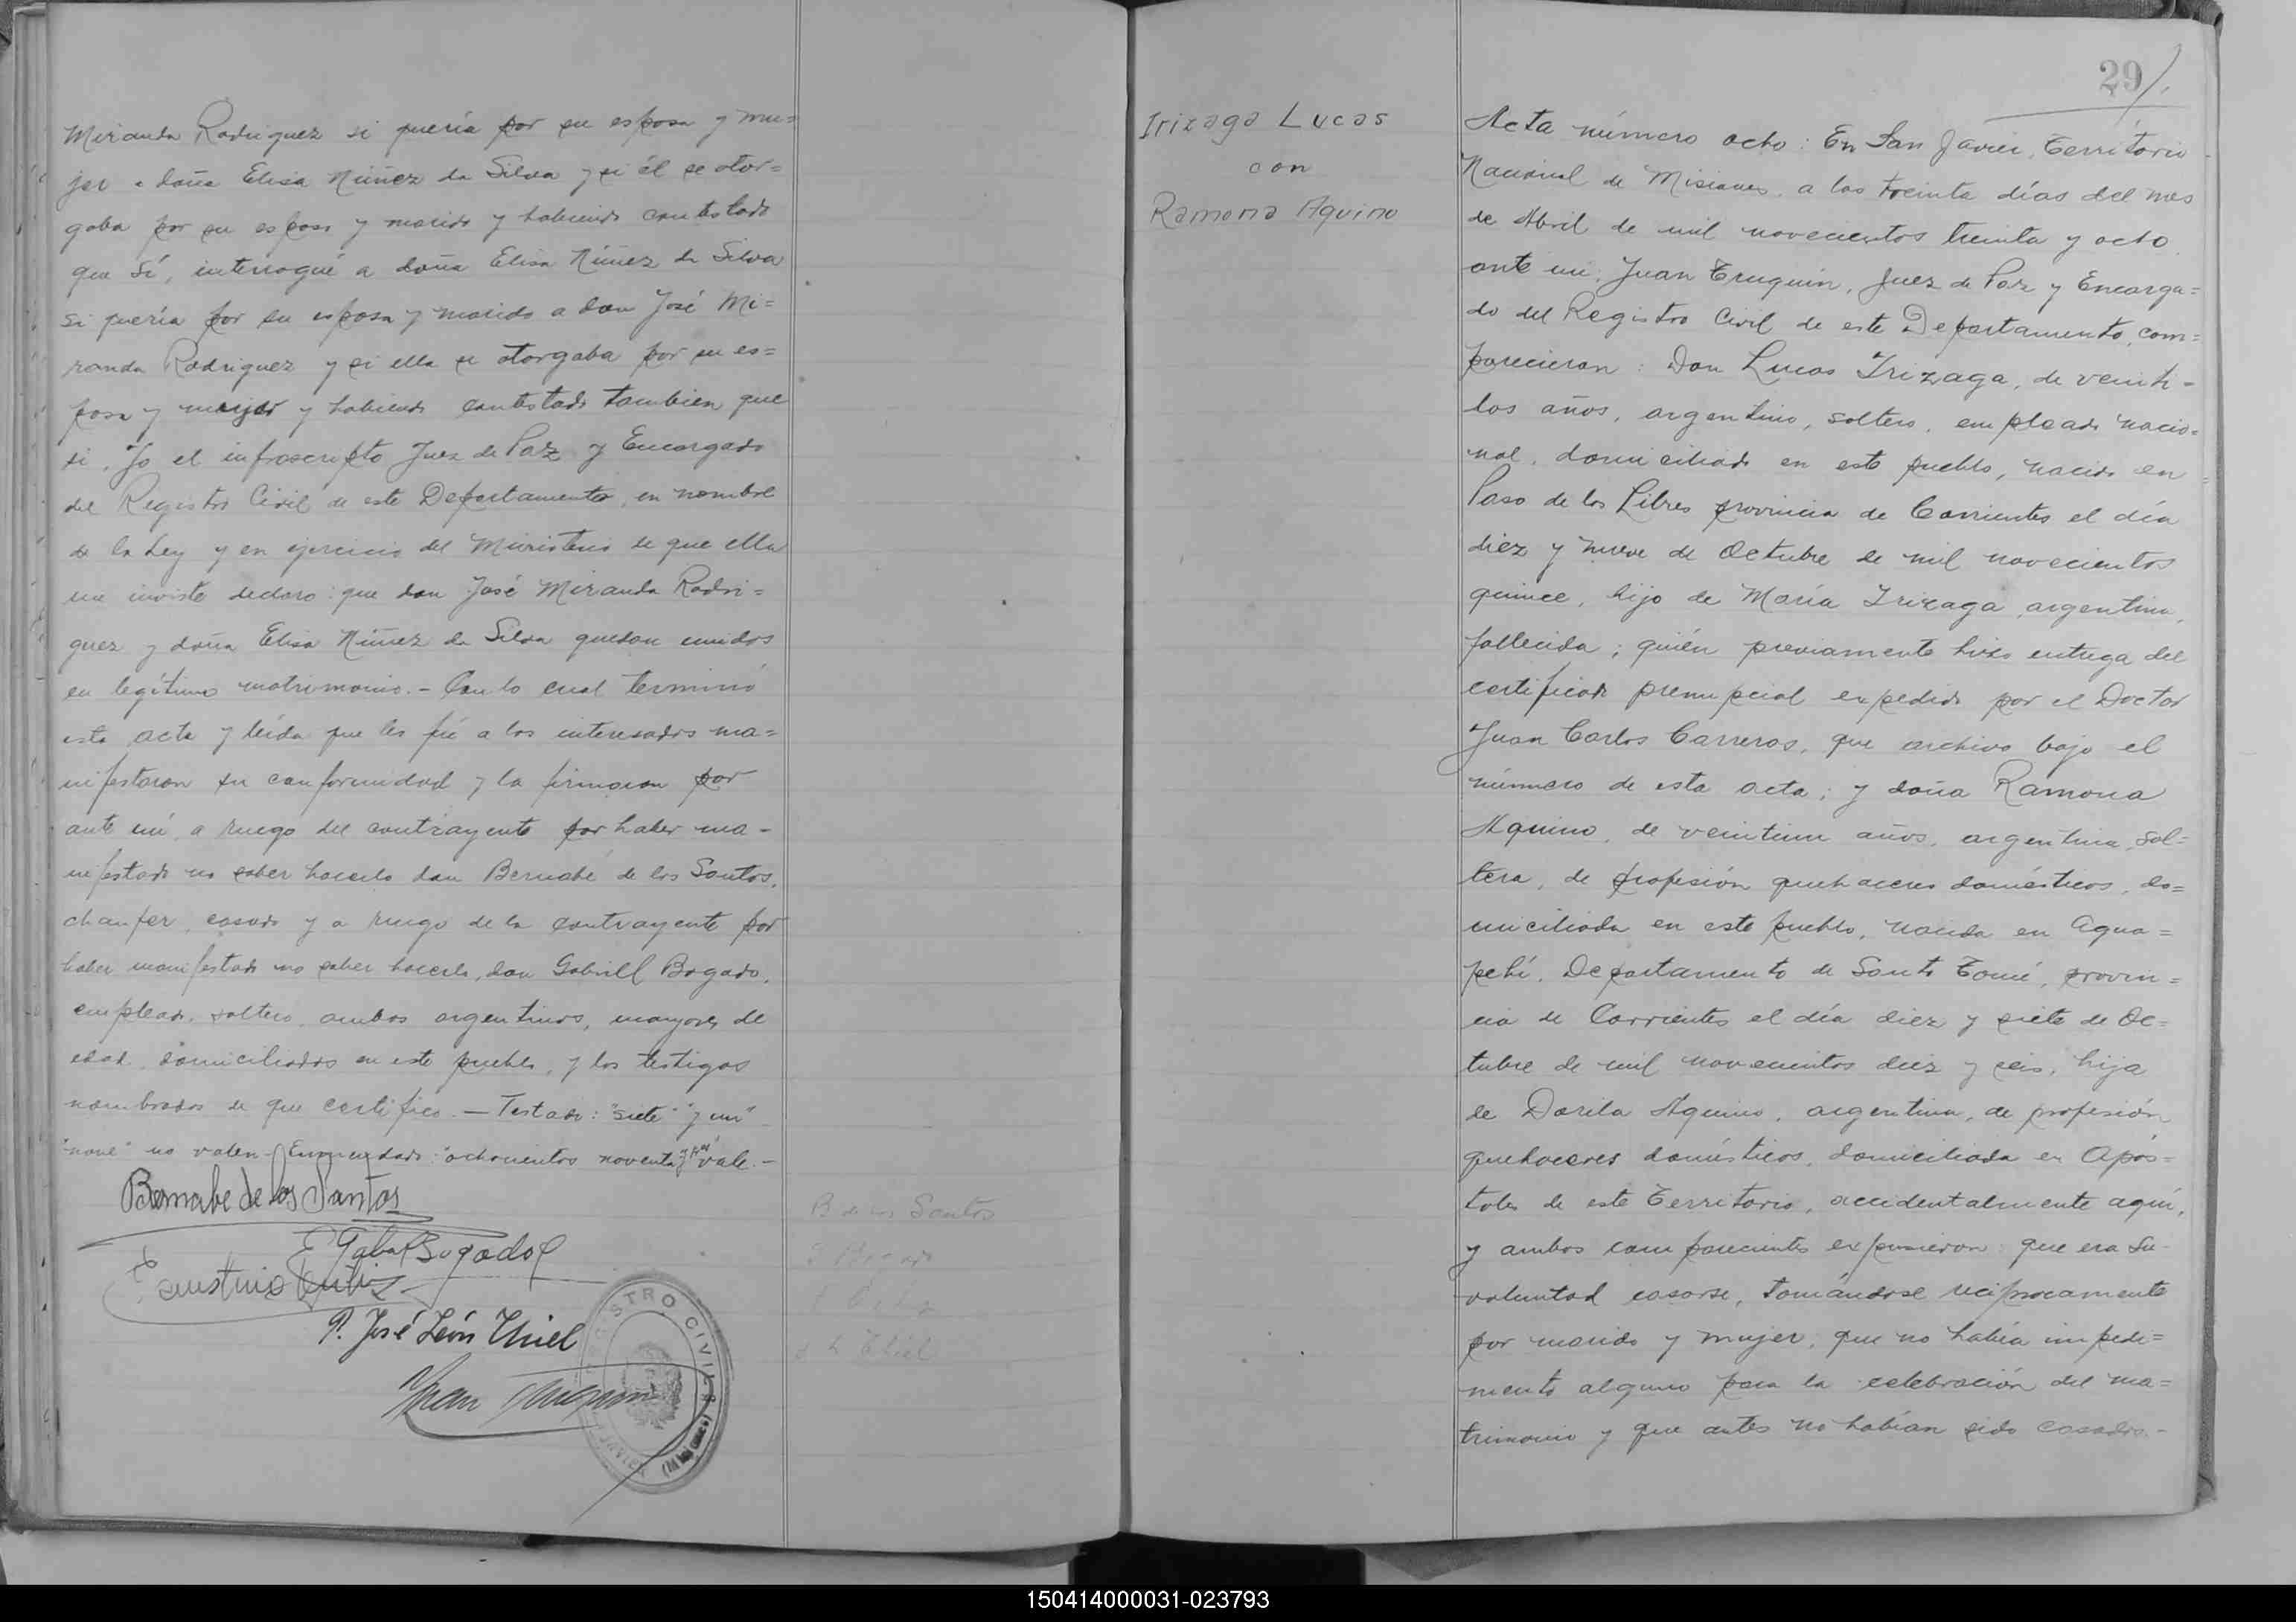 Miranda Rodriguez si quería por su esposa y mu=
jer a doña Elisa Núñez da Silva y si él se otor=
gaba por su esposo y marido y habiendo contestado
que Sí, interrogué a doña Elisa Núñez da Silva
si quería por su esposo y marido a don José Mi=
randa Rodriguez y si ella se otorgaba por su es=
posa y mujer y habiendo contestado tambien que
si, Yo el infrascripto Juez de Paz y Encargado
del Registro Civil de este Departamento, en nombre
de la Ley y en ejercicio del Ministerio de que ella
me inviste declaro: que don José Miranda Rodri=
guez y doña Elisa Núñez da Silva quedan unidos
en legítimo matrimonio.- Con lo cual terminó
esta acta y leída que les fué a los interesados ma=
nifestaron su conformidad y la firmaron por
ante mí, a ruego del contrayente por haber ma-
nifestado no saber hacerlo don Bernabé de los Santos,
chaufer, casado y a ruego de la contrayente por
haber manifestado no saber hacerlo, don Gabriel Bogado,
empleado, soltero, ambos argentinos, mayores de
edad, domiciliados en este pueblo, y los testigos
nombrados de que certifico.— Testado: "siete" "y un"
no valen - Enmendado: "ochocientos noventa y vale.-
Bernabe de los Santos
Gabl Bogado
P. José León Thiel
Juan Truquin
B de los Santos
L Thiel
STRO CIVIL
Irizaga Lucas
con
Ramona Aquino
29
Acta número octo: En San Javier, Territorio
Nacional de Misiones, a los treinta días del mes
de Abril de mil novecientos treinta y octo
ante mi, Juan Truquin, Juez de Paz y Encarga=
do del Registro Civil de este Departamento, com=
parecieron: Don Lucas Irizaga, de veinti-
dos años, argentino, soltero, empleado nacio=
nal, domiciliado en este pueblo, nacido en
Paso de los Libres provincia de Corrientes el día
diez y nueve de Octubre de mil novecientos
quince, hijo de María Irizaga, argentina,
fallecida; quién previamente hizo entrega del
certificado prenupcial expedido por el Doctor
Juan Carlos Carreras, que archivo bajo el
número de esta acta; y doña Ramona
Aquino, de veintiun años, argentina, sol=
tera, de profesión quehaceres domésticos, do=
miciliada en este pueblo, nacida en Agua=
pehí, Departamento de Santo Tomé, provin=
cia de Corrientes el día diez y siete de Oc=
tubre de mil novecientos diez y seis, hija
de Dorila Aquino, argentina, de profesión
quehaceres domésticos, domiciliada en Após=
toles de este Territorio, accidentalmente aquí,
y ambos comparecientes expusieron: que era su
voluntad casarse, tomándose recíprocamente
por marido y mujer, que no había impedi=
mento alguno para la celebración del ma=
trimonio y que antes no habían sido casados.-
150414000031-023793